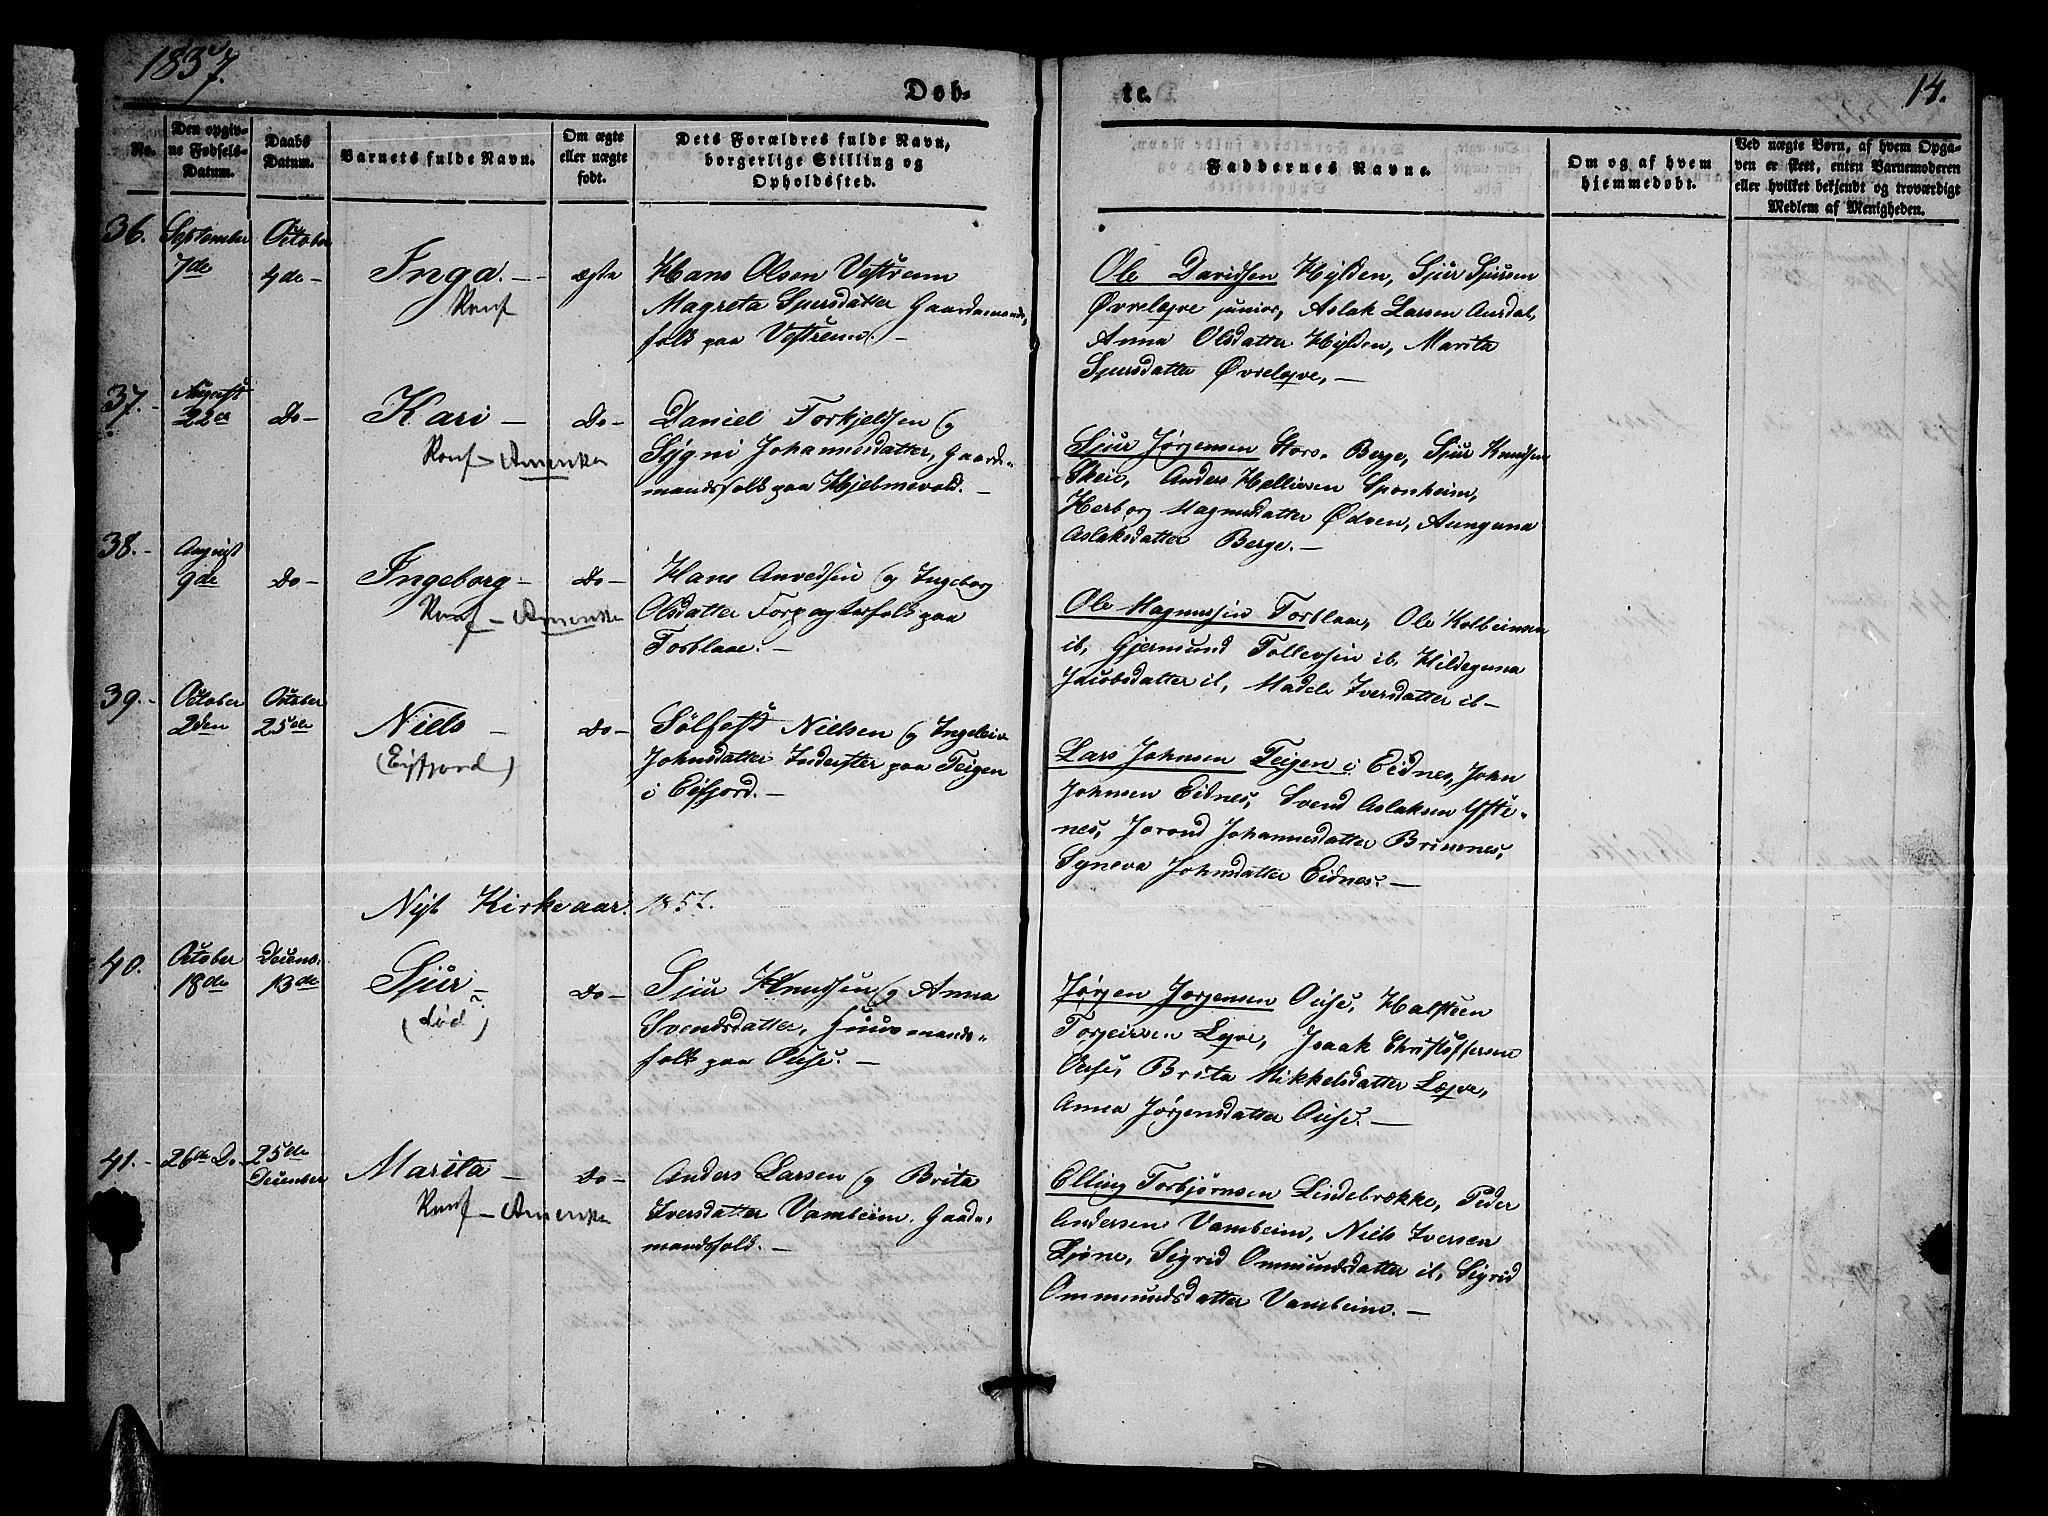 1837.
Døb-
te.
14.
No.
Den opgiv-
ne Fødsels-
Datum.
Daabs
Datum.
Barnets fulde Navn.
Om ægte
eller uægte
født.
Dets Forældres fulde Navn,
borgerlige Stilling og
Opholdssted.
Faddernes Navne.
Om og af hvem
hjemmedøbt.
Ved uægte Børn, af hvem Opga-
ven er skeet, enten Barnemoderen
eller hvilket bekjendt og troværdigt
Medlem af Menigheden.
36.
September
7de
October
4de -
Inga. -
Konf
ægte
Hans Olsen Vestrem
Magreta Sjursdatter Gaardmands-
folk paa Vestrem. -
Ole Davidsen Hylden, Sjur Sjursen
Øvreleqve junior, Aslak Larsen Aursdal,
Anna Olsdatter Hylden, Marita
Sjursdatter Øvreleqve, -
37. -
August
22de
Do -
Kari -
Konf - Amerika
Do -
Daniel Torkjelsen og
Sygni Johannesdatter, Gaard-
mandsfolk paa Hjelmevold. -
Sjur Jørgensen Stors. Berge, Sjur Knudsen
Skeie, Anders Hellissen Sponheim,
Herborg Magnusdatter Ødven, Aunguna
Aslaksdatter Berge. -
38. -
August
9de
Do -
Ingeborg -
Konf - Amerika
Do -
Hans Anvedsen og Ingeborg
Olsdatter Forpagterfolk paa
Torblaae. -
Ole Magnussen Torblaae, Ole Kolbeinsen
ib, Gjermund Tollevsen ib, Hildeguna
Jacobsdatter ib, Madele Iversdatter ib -
39. -
October
2den
October
25de
Niels -
(Eifjord)
Do -
Sølfest Nielsen og Ingeleiv
Johnsdatter Inderster paa Teigen
i Eifjord. -
Lars Johnsen Teigen i Eidnes, John
Johnsen Eidnes, Svend Aslaksen Yste-
nes, Jorond Johannesdatter Brimnes,
Syneva Johnsdatter Eidnes. -
Nyt Kirkeaar. 1837.
40.
October
18de
Decemb.
13de
Sjur -
(død)
Do -
Sjur Knudsen og Anna
Svendsdatter, Huusmands-
folk paa Ouse. -
Jørgen Jørgensen Ouse, Halsteen
Torgeirsen Leqve, Isaak Christoffersen
Ouse, Brita Mikkelsdatter Leqve,
Anna Jørgensdatter Ouse. -
41. -
26de Do
25de
December
Marita -
Konf - Amerika
Do -
Anders Larsen og Brita
Iversdatter Vambeim. Gaard-
mandsfolk. -
Elling Torbjørnsen Lindebrække, Peder
Andersen Vambeim, Niels Iversen
Ljøne, Sigrid Ommundsdatter ib, Sigrid
Ommundsdatter Vambeim. -